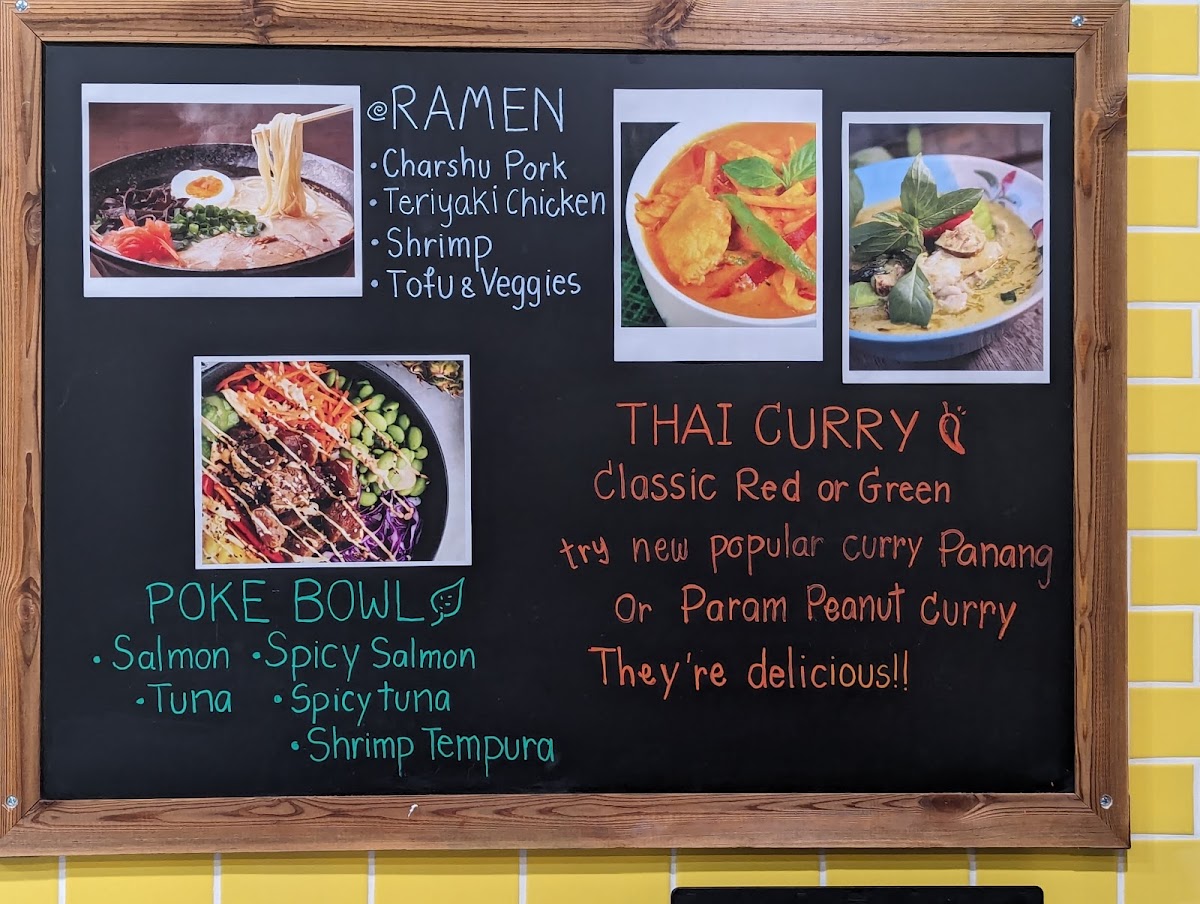 RAMEN
• Charshu Pork
• Teriyaki Chicken
• Shrimp
• Tofu & Veggies
POKE BOWL
• Salmon • Spicy Salmon
• Tuna • Spicy tuna
• Shrimp Tempura
THAI CURRY
Classic Red or Green
try new popular curry Panang
Or Param Peanut Curry
They're delicious!!